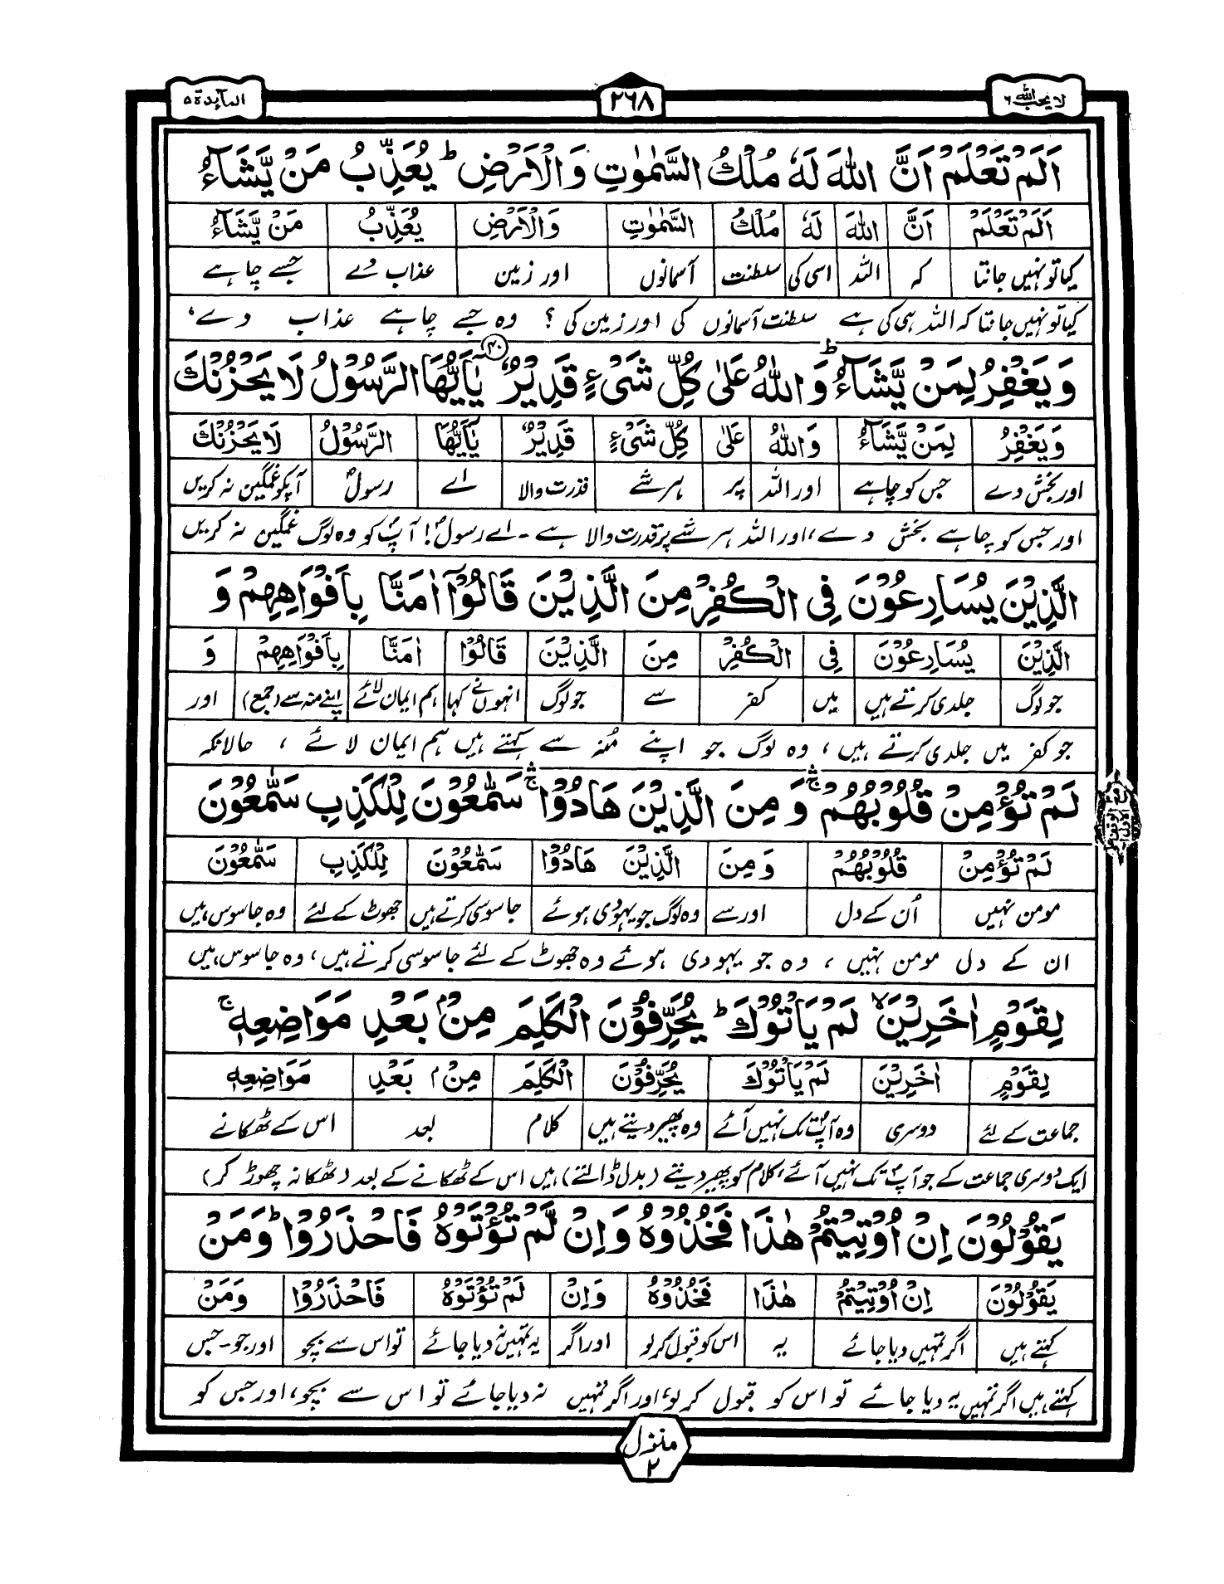 لا یحب اللہ ٦
٢٦٨
المآئدة ٥
اَلَمْ تَعْلَمْ اَنَّ اللّٰهَ لَهٗ مُلْكُ السَّمٰوٰتِ وَالْاَرْضِ ؕ یُعَذِّبُ مَنْ یَّشَآءُ
اَلَمْ تَعْلَمْ اَنَّ اللّٰهَ لَهٗ مُلْكُ السَّمٰوٰتِ وَالْاَرْضِ یُعَذِّبُ مَنْ یَّشَآءُ
کیا تو نہیں جانتا کہ اللہ اسی کی سلطنت آسمانوں اور زمین عذاب دے جسے چاہے
کیا تو نہیں جانتا کہ اللہ ہی کی ہے سلطنت آسمانوں کی اور زمین کی ؟ وہ جسے چاہے عذاب دے،
وَیَغْفِرُ لِمَنْ یَّشَآءُ ؕ وَاللّٰهُ عَلٰى كُلِّ شَیْءٍ قَدِیْرٌ ۴۰ یٰۤاَیُّهَا الرَّسُوْلُ لَا یَحْزُنْكَ
وَیَغْفِرُ لِمَنْ یَّشَآءُ وَاللّٰهُ عَلٰى كُلِّ شَیْءٍ قَدِیْرٌ یٰۤاَیُّهَا الرَّسُوْلُ لَا یَحْزُنْكَ
اور بخش دے جس کو چاہے اور اللہ پر ہر شے قدرت والا اے رسولؐ آپکو غمگین نہ کریں
اور جس کو چاہے بخش دے، اور اللہ ہر شے پر قدرت والا ہے - اے رسولؐ! آپؐ کو وہ لوگ غمگین نہ کریں
الَّذِیْنَ یُسَارِعُوْنَ فِی الْكُفْرِ مِنَ الَّذِیْنَ قَالُوْۤا اٰمَنَّا بِاَفْوَاهِهِمْ وَ
الَّذِیْنَ یُسَارِعُوْنَ فِی الْكُفْرِ مِنَ الَّذِیْنَ قَالُوْا اٰمَنَّا بِاَفْوَاهِهِمْ وَ
جو لوگ جلدی کرتے ہیں میں کفر سے جو لوگ انہوں نے کہا ہم ایمان لائے اپنے منہ سے (جمع) اور
جو کفر میں جلدی کرتے ہیں، وہ لوگ جو اپنے مُنہ سے کہتے ہیں ہم ایمان لائے ، حالانکہ
لَمْ تُؤْمِنْ قُلُوْبُهُمْ ۛۚ وَ مِنَ الَّذِیْنَ هَادُوْا ۛۚ سَمّٰعُوْنَ لِلْكَذِبِ سَمّٰعُوْنَ
لَمْ تُؤْمِنْ قُلُوْبُهُمْ وَ مِنَ الَّذِیْنَ هَادُوْا سَمّٰعُوْنَ لِلْكَذِبِ سَمّٰعُوْنَ
مومن نہیں اُن کے دل اور سے وہ لوگ جو یہودی ہوئے جاسوسی کرتے ہیں جھوٹ کے لئے وہ جاسوس ہیں
ان کے دل مومن نہیں ، وہ جو یہودی ہوئے وہ جھوٹ کے لئے جاسوسی کرتے ہیں، وہ جاسوس ہیں
لِقَوْمٍ اٰخَرِیْنَ ۙ لَمْ یَاْتُوْكَ ؕ یُحَرِّفُوْنَ الْكَلِمَ مِنْۢ بَعْدِ مَوَاضِعِهٖ ۚ
لِقَوْمٍ اٰخَرِیْنَ لَمْ یَاْتُوْكَ یُحَرِّفُوْنَ الْكَلِمَ مِنْۢ بَعْدِ مَوَاضِعِهٖ
جماعت کے لئے دوسری وہ آپؐ تک نہیں آئے وہ پھیر دیتے ہیں کلام بعد اس کے ٹھکانے
ایک دوسری جماعت کے جو آپؐ تک نہیں آئے، کلام کو پھیر دیتے (بدل ڈالتے) ہیں اس کے ٹھکانے کے بعد (ٹھکانہ چھوڑ کر)
یَقُوْلُوْنَ اِنْ اُوْتِیْتُمْ هٰذَا فَخُذُوْهُ وَاِنْ لَّمْ تُؤْتَوْهُ فَاحْذَرُوْا ؕ وَمَنْ
یَقُوْلُوْنَ اِنْ اُوْتِیْتُمْ هٰذَا فَخُذُوْهُ وَاِنْ لَمْ تُؤْتَوْهُ فَاحْذَرُوْا وَمَنْ
کہتے ہیں اگر تمہیں دیا جائے یہ اس کو قبول کرلو اور اگر یہ تمہیں نہ دیا جائے تو اس سے بچو اور جو-جس
کہتے ہیں اگر تمہیں یہ دیا جائے تو اس کو قبول کرلو، اور اگر تمہیں نہ دیا جائے تو اس سے بچو، اور جس کو
منزل ٢